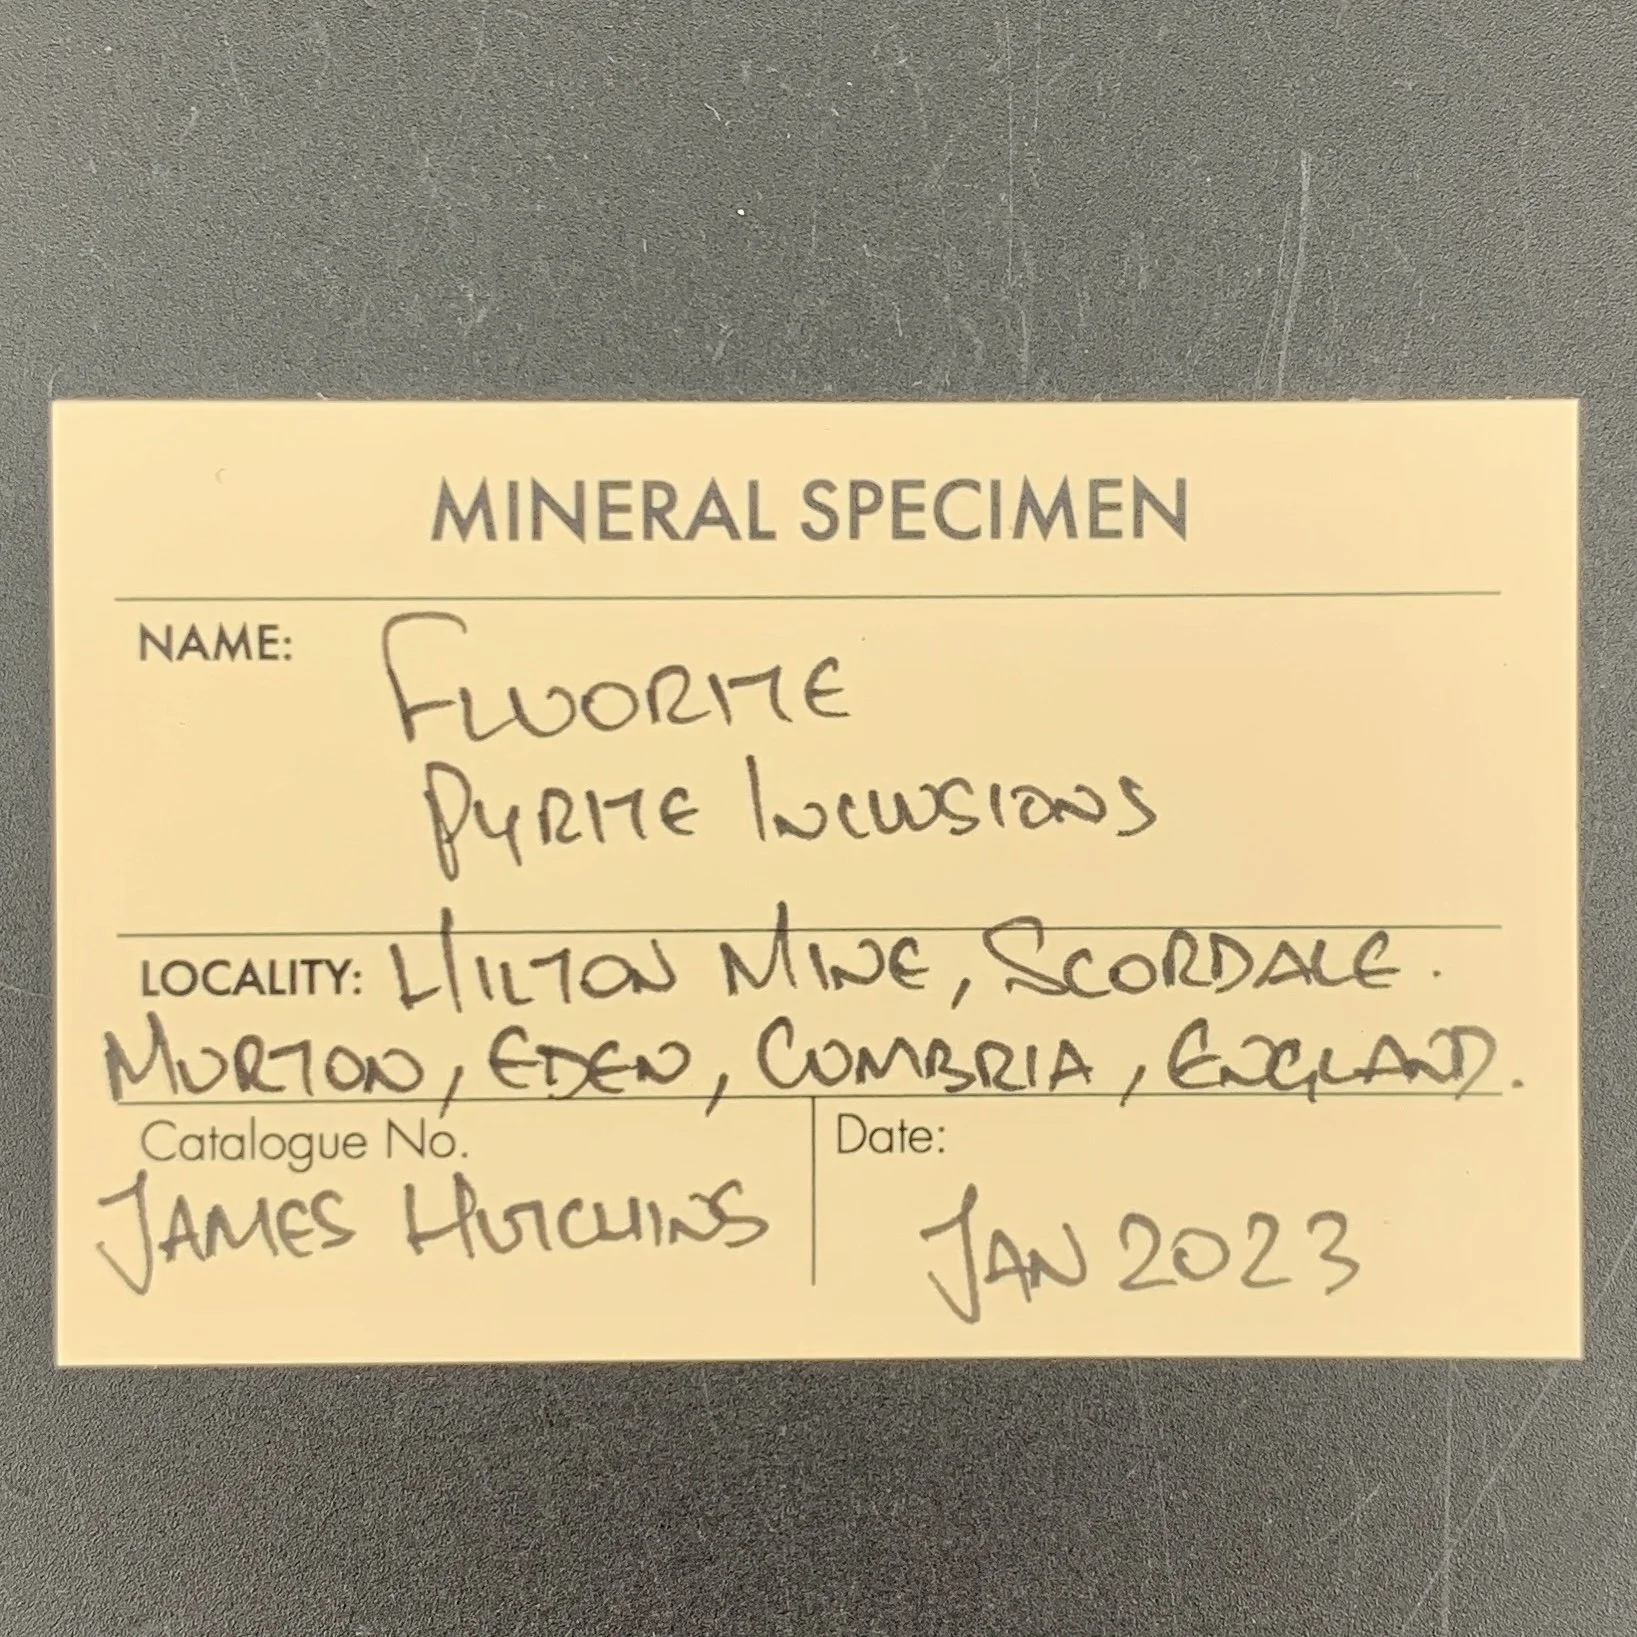 MINERAL SPECIMEN
NAME: FLUORITE
PYRITE INCLUSIONS
LOCALITY: HILTON MINE, SCORDALE.
MURTON, EDEN, CUMBRIA, ENGLAND.
Catalogue No. Date:
JAMES HUTCHINS JAN 2023